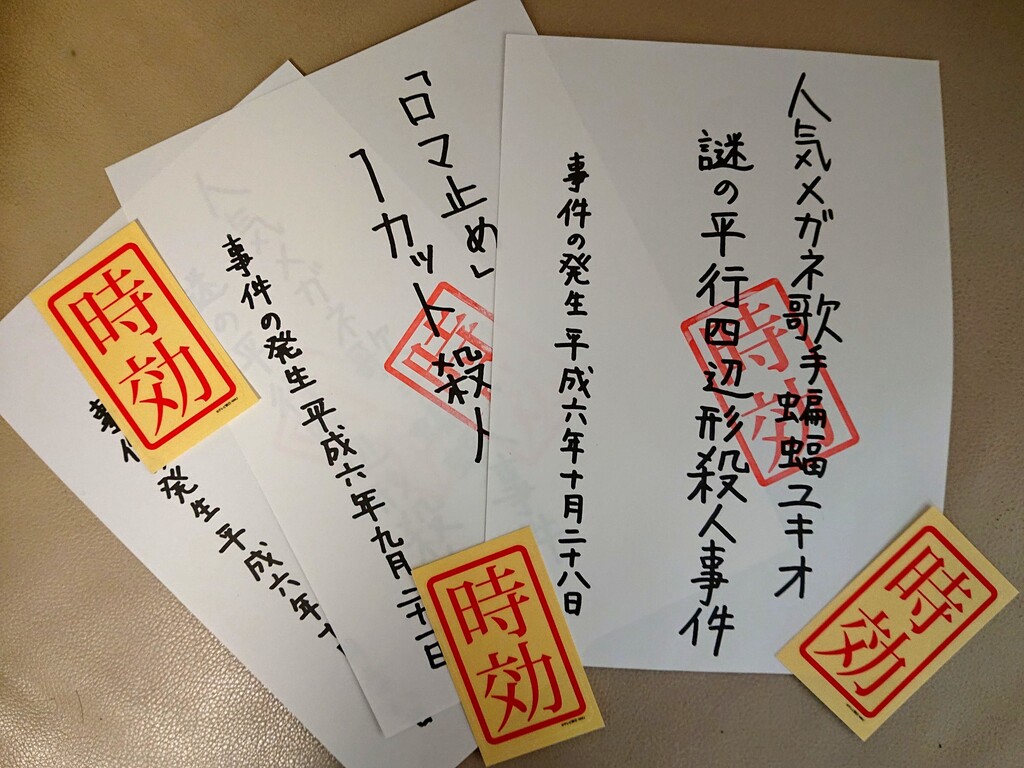 人気メガネ歌手蝙蝠ユキオ
謎の平行四辺形殺人事件
事件の発生 平成六年十月二十八日
時効
「ロマ止め」
ーカット殺人
事件の発生 平成六年九月二十二日
時効
事件の発生 平成六年十
時効
時効
時効